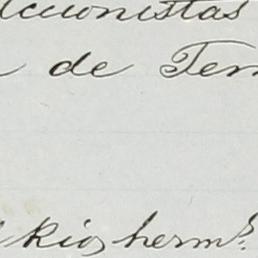 ccionistas
de Ter
Rios herm.s